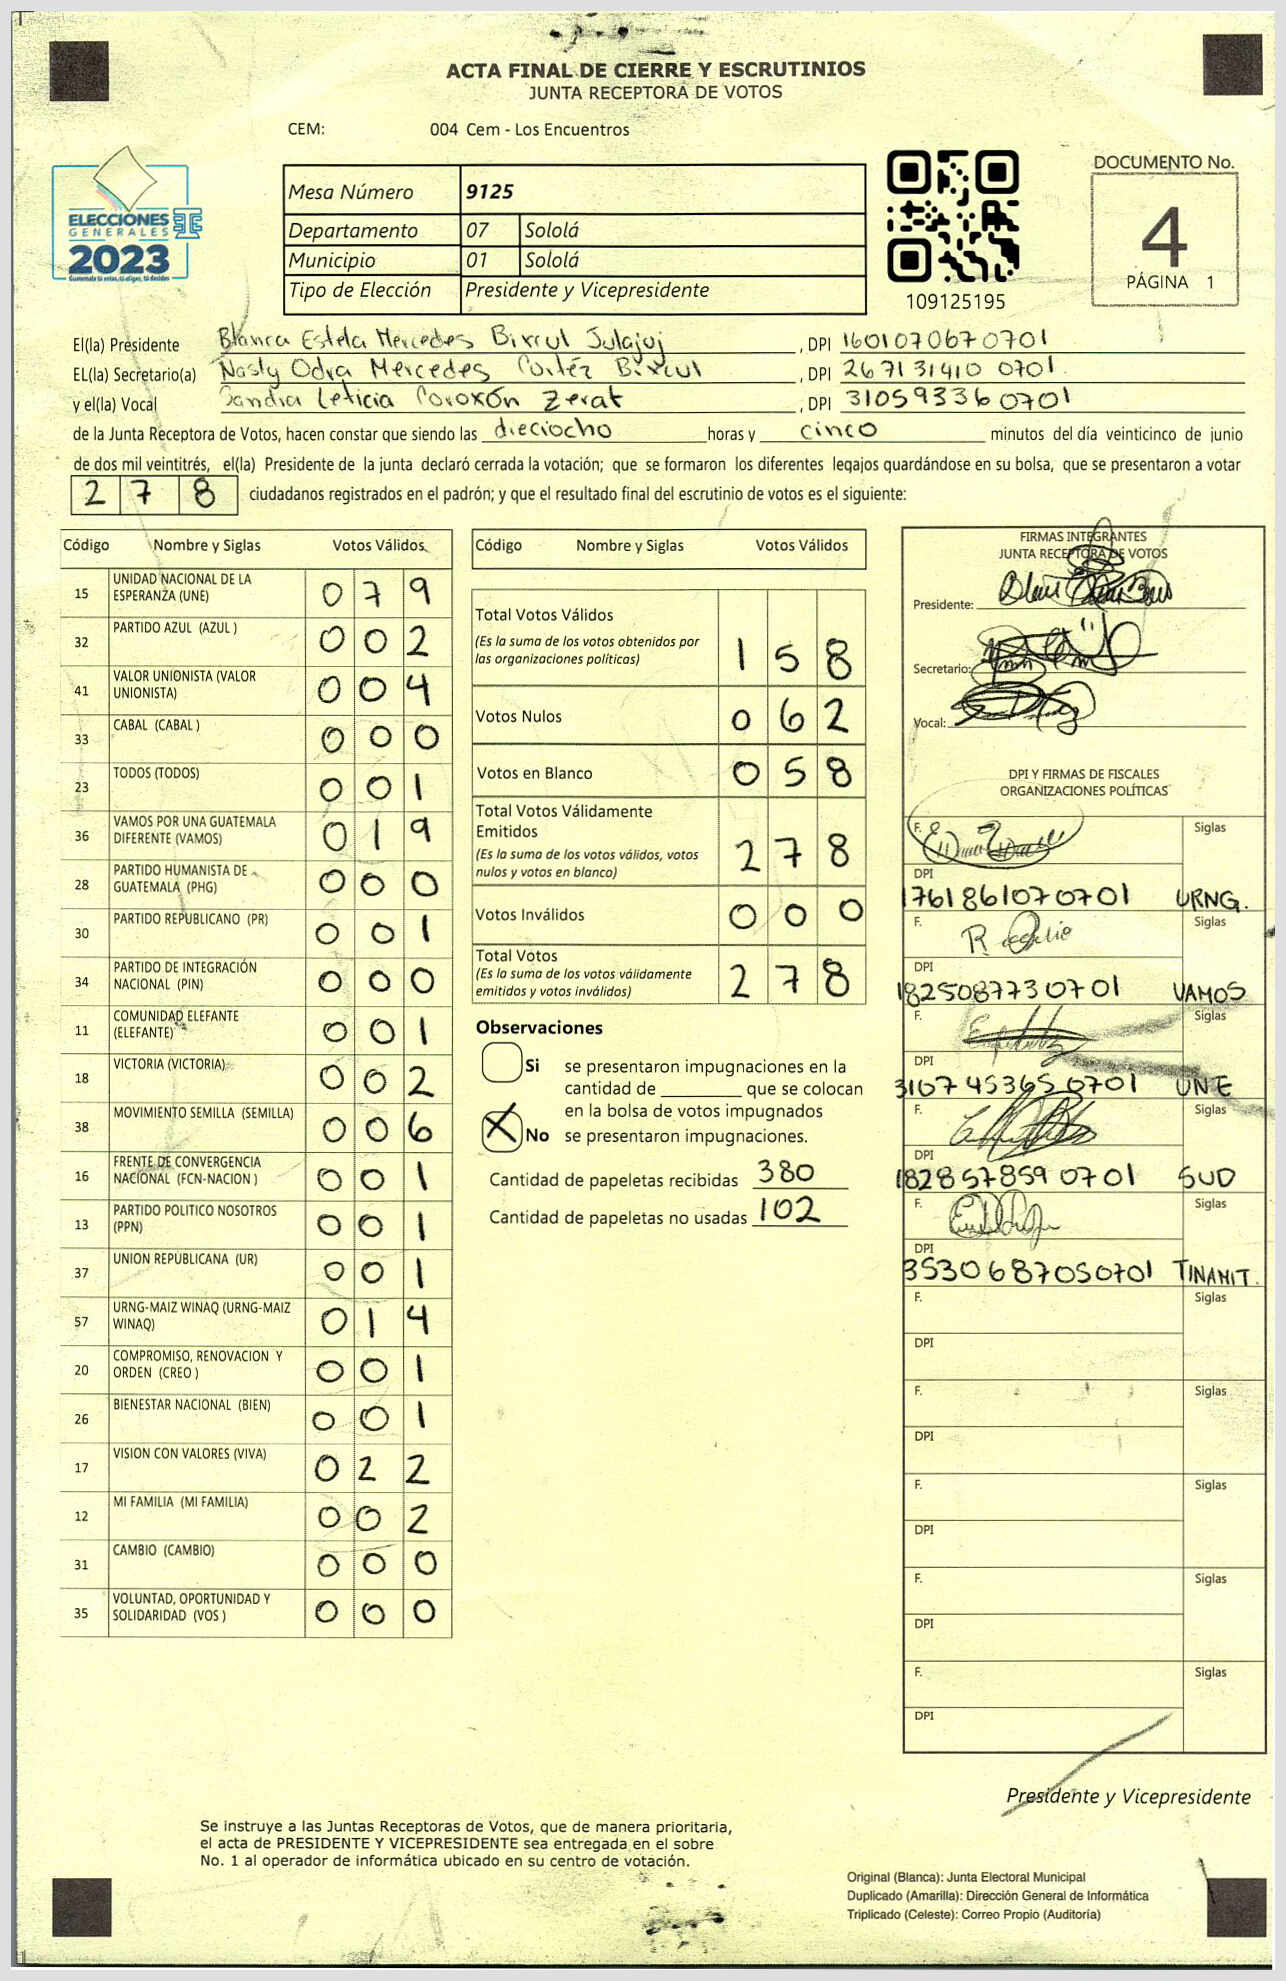 ACTA FINAL DE CIERRE Y ESCRUTINIOS
JUNTA RECEPTORA DE VOTOS
CEM: 004 Cem - Los Encuentros
ELECCIONES
GENERALES
2023
Mesa Número 9125
Departamento 07 Sololá
Municipio 01 Sololá
Tipo de Elección Presidente y Vicepresidente
109125195
DOCUMENTO No.
4
PÁGINA 1
El(la) Presidente Blanca Estela Mercedes Bixcul Julajuj, DPI 1601070670701
EL(la) Secretario(a) Nasly Odra Mercedes Cortéz Bixcul, DPI 2671314100701
y el(la) Vocal Sandra Leticia Coroxón Zerat, DPI 3105933600701
de la Junta Receptora de Votos, hacen constar que siendo las dieciocho horas y cinco minutos del día veinticinco de junio
de dos mil veintitrés, el(la) Presidente de la junta declaró cerrada la votación; que se formaron los diferentes legajos guardándose en su bolsa, que se presentaron a votar
278 ciudadanos registrados en el padrón; y que el resultado final del escrutinio de votos es el siguiente:
Código Nombre y Siglas Votos Válidos
15 UNIDAD NACIONAL DE LA ESPERANZA (UNE) 079
32 PARTIDO AZUL (AZUL ) 002
41 VALOR UNIONISTA (VALOR UNIONISTA) 004
33 CABAL (CABAL ) 000
23 TODOS (TODOS) 001
36 VAMOS POR UNA GUATEMALA DIFERENTE (VAMOS) 019
28 PARTIDO HUMANISTA DE GUATEMALA (PHG) 000
30 PARTIDO REPUBLICANO (PR) 001
34 PARTIDO DE INTEGRACIÓN NACIONAL (PIN) 000
11 COMUNIDAD ELEFANTE (ELEFANTE) 001
18 VICTORIA (VICTORIA) 002
38 MOVIMIENTO SEMILLA (SEMILLA) 006
16 FRENTE DE CONVERGENCIA NACIONAL (FCN-NACION ) 001
13 PARTIDO POLITICO NOSOTROS (PPN) 001
37 UNION REPUBLICANA (UR) 001
57 URNG-MAIZ WINAQ (URNG-MAIZ WINAQ) 014
20 COMPROMISO, RENOVACION Y ORDEN (CREO ) 001
26 BIENESTAR NACIONAL (BIEN) 001
17 VISION CON VALORES (VIVA) 022
12 MI FAMILIA (MI FAMILIA) 002
31 CAMBIO (CAMBIO) 000
35 VOLUNTAD, OPORTUNIDAD Y SOLIDARIDAD (VOS ) 000
Código Nombre y Siglas Votos Válidos
Total Votos Válidos
(Es la suma de los votos obtenidos por
las organizaciones políticas) 158
Votos Nulos 062
Votos en Blanco 058
Total Votos Válidamente
Emitidos
(Es la suma de los votos válidos, votos
nulos y votos en blanco) 278
Votos Inválidos 000
Total Votos
(Es la suma de los votos válidamente
emitidos y votos inválidos) 278
Observaciones
Si se presentaron impugnaciones en la
cantidad de ________ que se colocan
en la bolsa de votos impugnados
X No se presentaron impugnaciones.
Cantidad de papeletas recibidas 380
Cantidad de papeletas no usadas 102
FIRMAS INTEGRANTES
JUNTA RECEPTORA DE VOTOS
Presidente:
Secretario:
Vocal:
DPI Y FIRMAS DE FISCALES
ORGANIZACIONES POLÍTICAS
F. Siglas
DPI
1761861070701 URNG.
F. Siglas
DPI
1825087730701 VAMOS
F. Siglas
DPI
3107453650701 UNE
F. Siglas
DPI
1828578590701 SUD
F. Siglas
DPI
3530687050701 TINAMIT.
F. Siglas
DPI
F. Siglas
DPI
F. Siglas
DPI
F. Siglas
DPI
F. Siglas
DPI
Presidente y Vicepresidente
Se instruye a las Juntas Receptoras de Votos, que de manera prioritaria,
el acta de PRESIDENTE Y VICEPRESIDENTE sea entregada en el sobre
No. 1 al operador de informática ubicado en su centro de votación.
Original (Blanca): Junta Electoral Municipal
Duplicado (Amarilla): Dirección General de Informática
Triplicado (Celeste): Correo Propio (Auditoría)